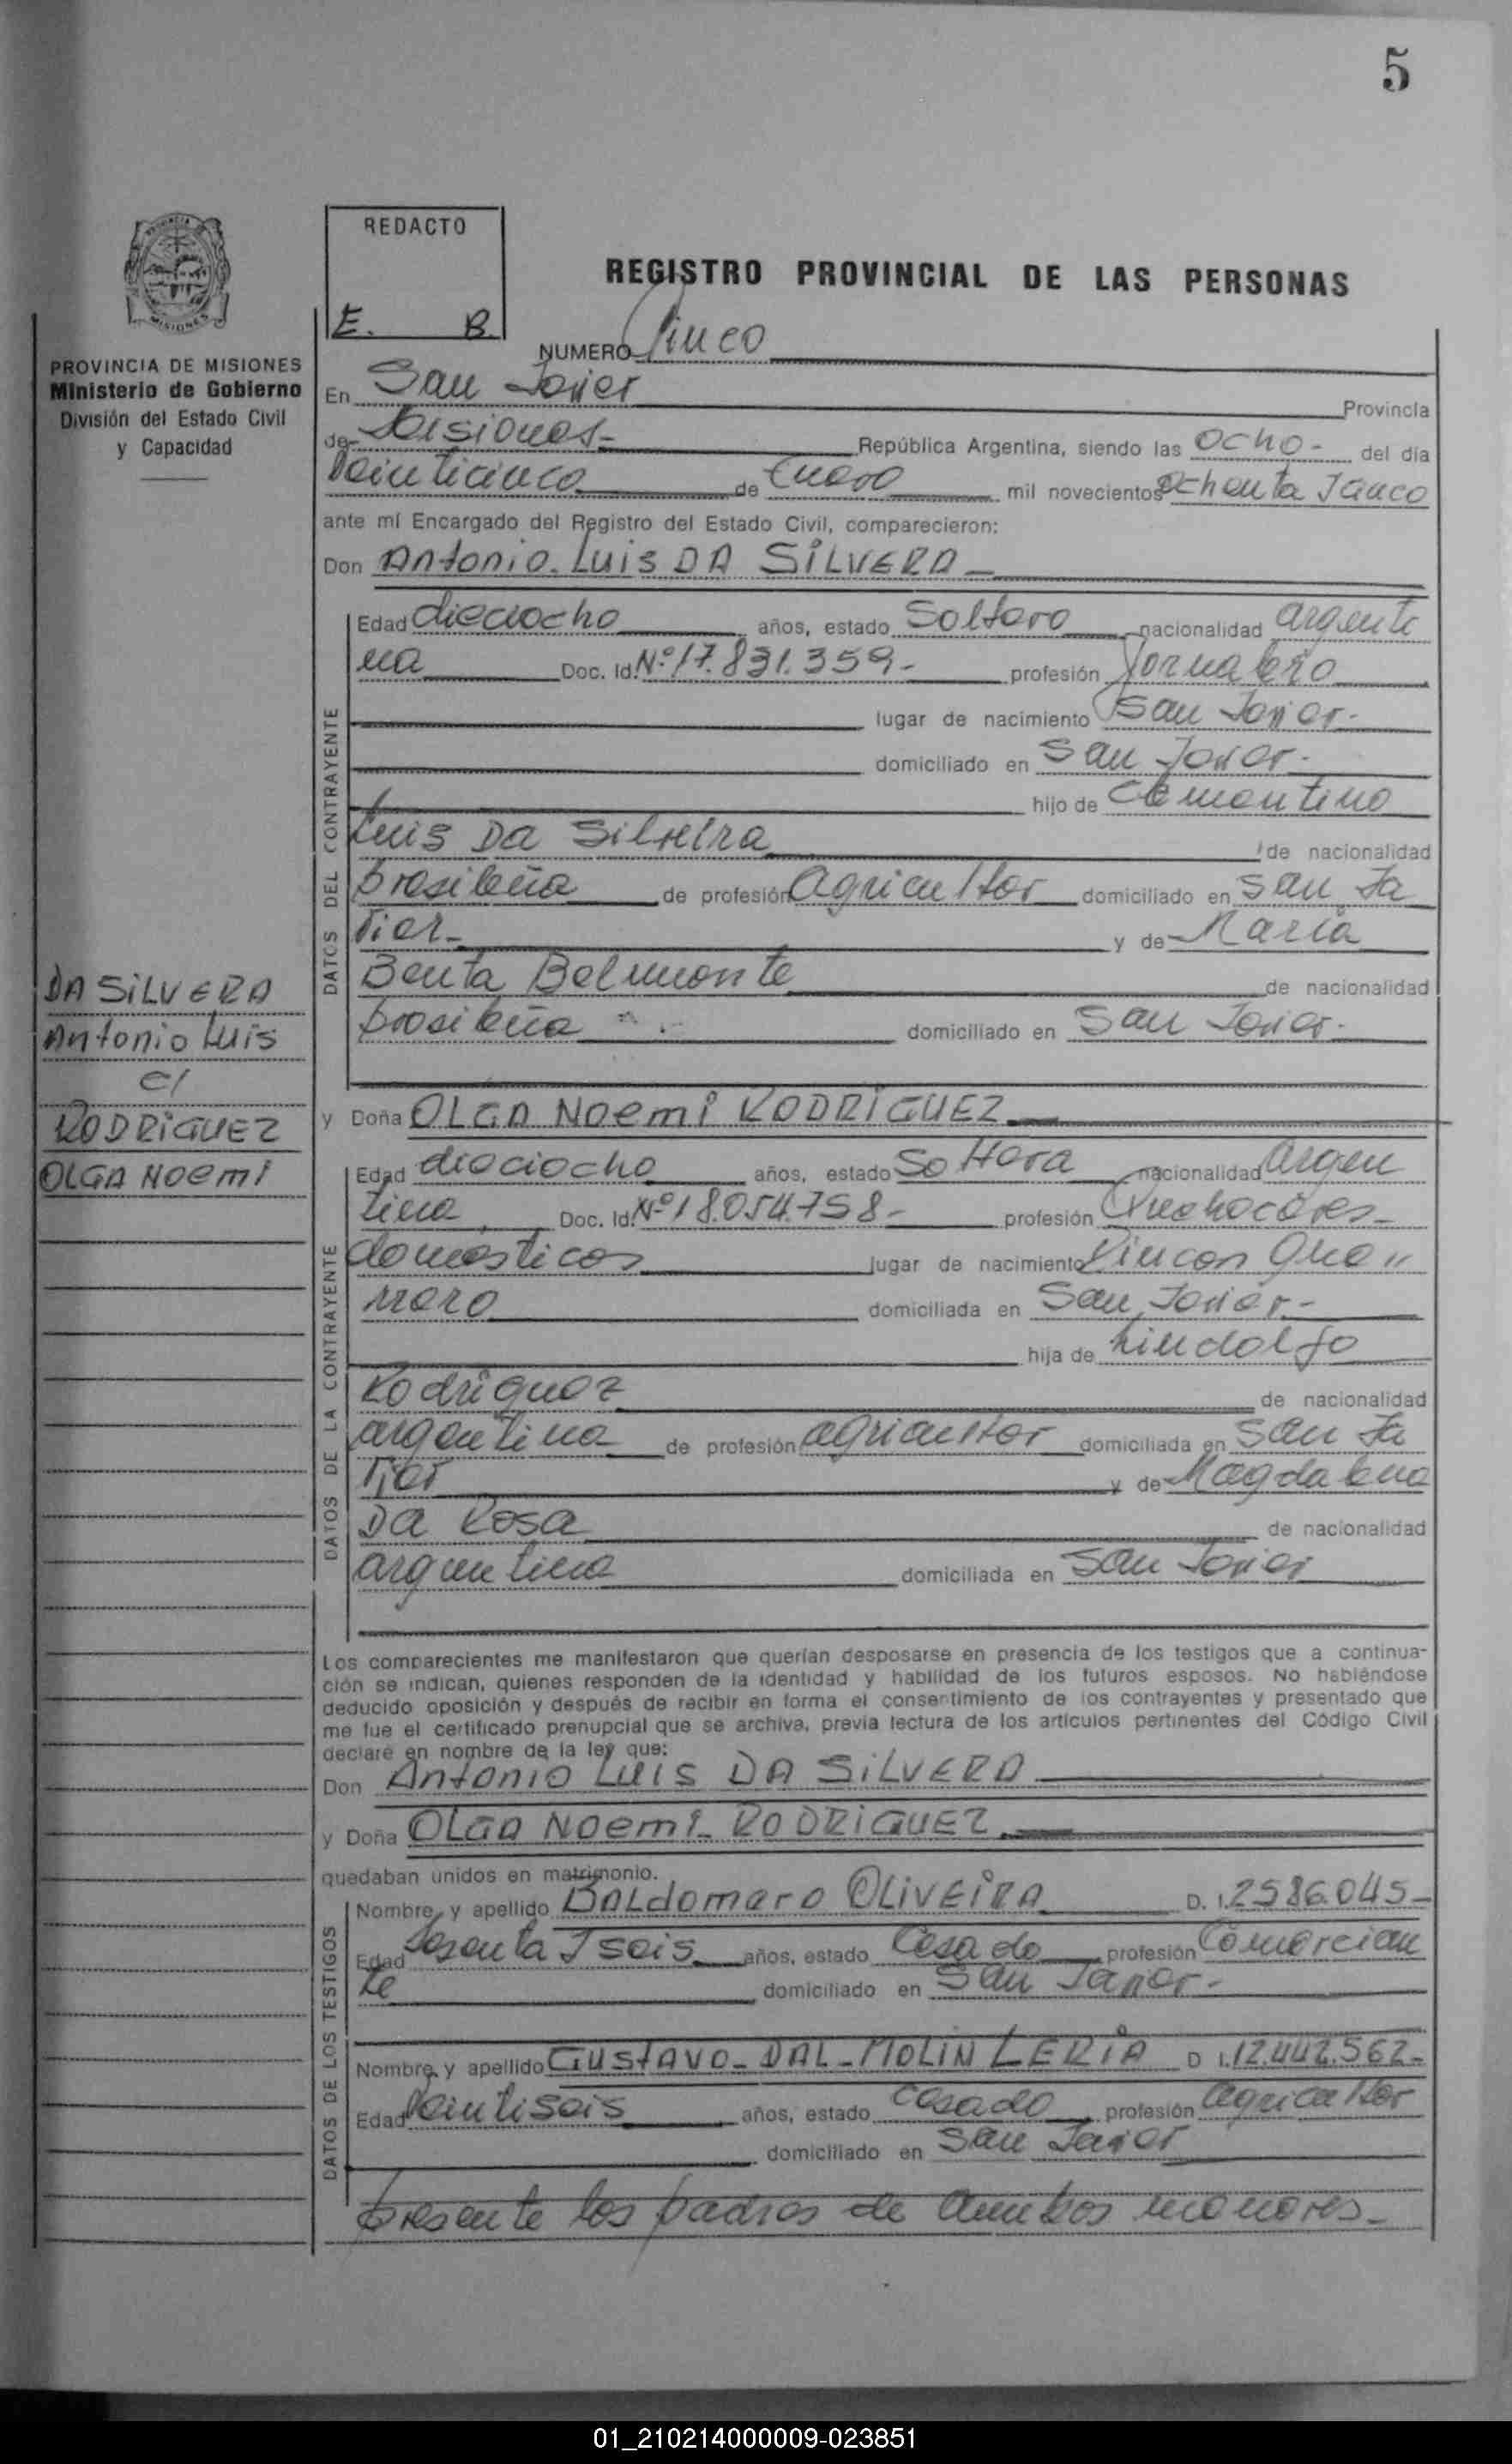 5
REDACTO
E. B.
REGISTRO PROVINCIAL DE LAS PERSONAS
PROVINCIA DE MISIONES
Ministerio de Gobierno
División del Estado Civil
y Capacidad
NUMERO Cinco
En San Javier Provincia
de Misiones.- República Argentina, siendo las ocho - del día
Veinticinco de Enero mil novecientos ochenta y cinco
ante mí Encargado del Registro del Estado Civil, comparecieron:
Don Antonio Luis DA SILVERA
DATOS DEL CONTRAYENTE
Edad dieciocho años, estado Soltero nacionalidad argenti
na Doc. Id. Nº 17.831.359- profesión Jornalero
lugar de nacimiento San Javier-
domiciliado en San Javier-
hijo de Clementino
Luis Da Silveira de nacionalidad
brasileña de profesión agricultor domiciliado en San Ja
vier- y de María
Benta Belmonte de nacionalidad
brasileña domiciliado en San Javier-
DA SILVERA
Antonio Luis
c/
RODRIGUEZ
OLGA Noemi
y Doña OLGA Noemi RODRIGUEZ
DATOS DE LA CONTRAYENTE
Edad dieciocho años, estado Soltera nacionalidad argen
tina Doc. Id. Nº 18.054.758- profesión Quehaceres
domésticos lugar de nacimiento Rincon
domiciliada en San Javier-
hija de Lindolfo
Rodriguez de nacionalidad
argentina de profesión agricultor domiciliada en San Ja
vier y de Magdalena
Da Rosa de nacionalidad
argentina domiciliada en San Javier
Los comparecientes me manifestaron que querían desposarse en presencia de los testigos que a continua-
ción se indican, quienes responden de la identidad y habilidad de los futuros esposos. No habiéndose
deducido oposición y después de recibir en forma el consentimiento de los contrayentes y presentado que
me fue el certificado prenupcial que se archiva, previa lectura de los artículos pertinentes del Código Civil
declaré en nombre de la ley que:
Don Antonio Luis DA SILVERA
y Doña OLGA Noemi RODRIGUEZ
quedaban unidos en matrimonio.
DATOS DE LOS TESTIGOS
Nombre y apellido BALdomero OLIVEIRA D. I. 2586.045-
Edad Sesenta y seis años, estado Casado profesión Comercian
te domiciliado en San Javier-
Nombre y apellido GUSTAVO- DAL-MOLIN LERIA D I. 12.442.562-
Edad Veintiseis años, estado Casado profesión agricultor
domiciliado en San Javier
presente los padres de ambos menores-
01_210214000009-023851